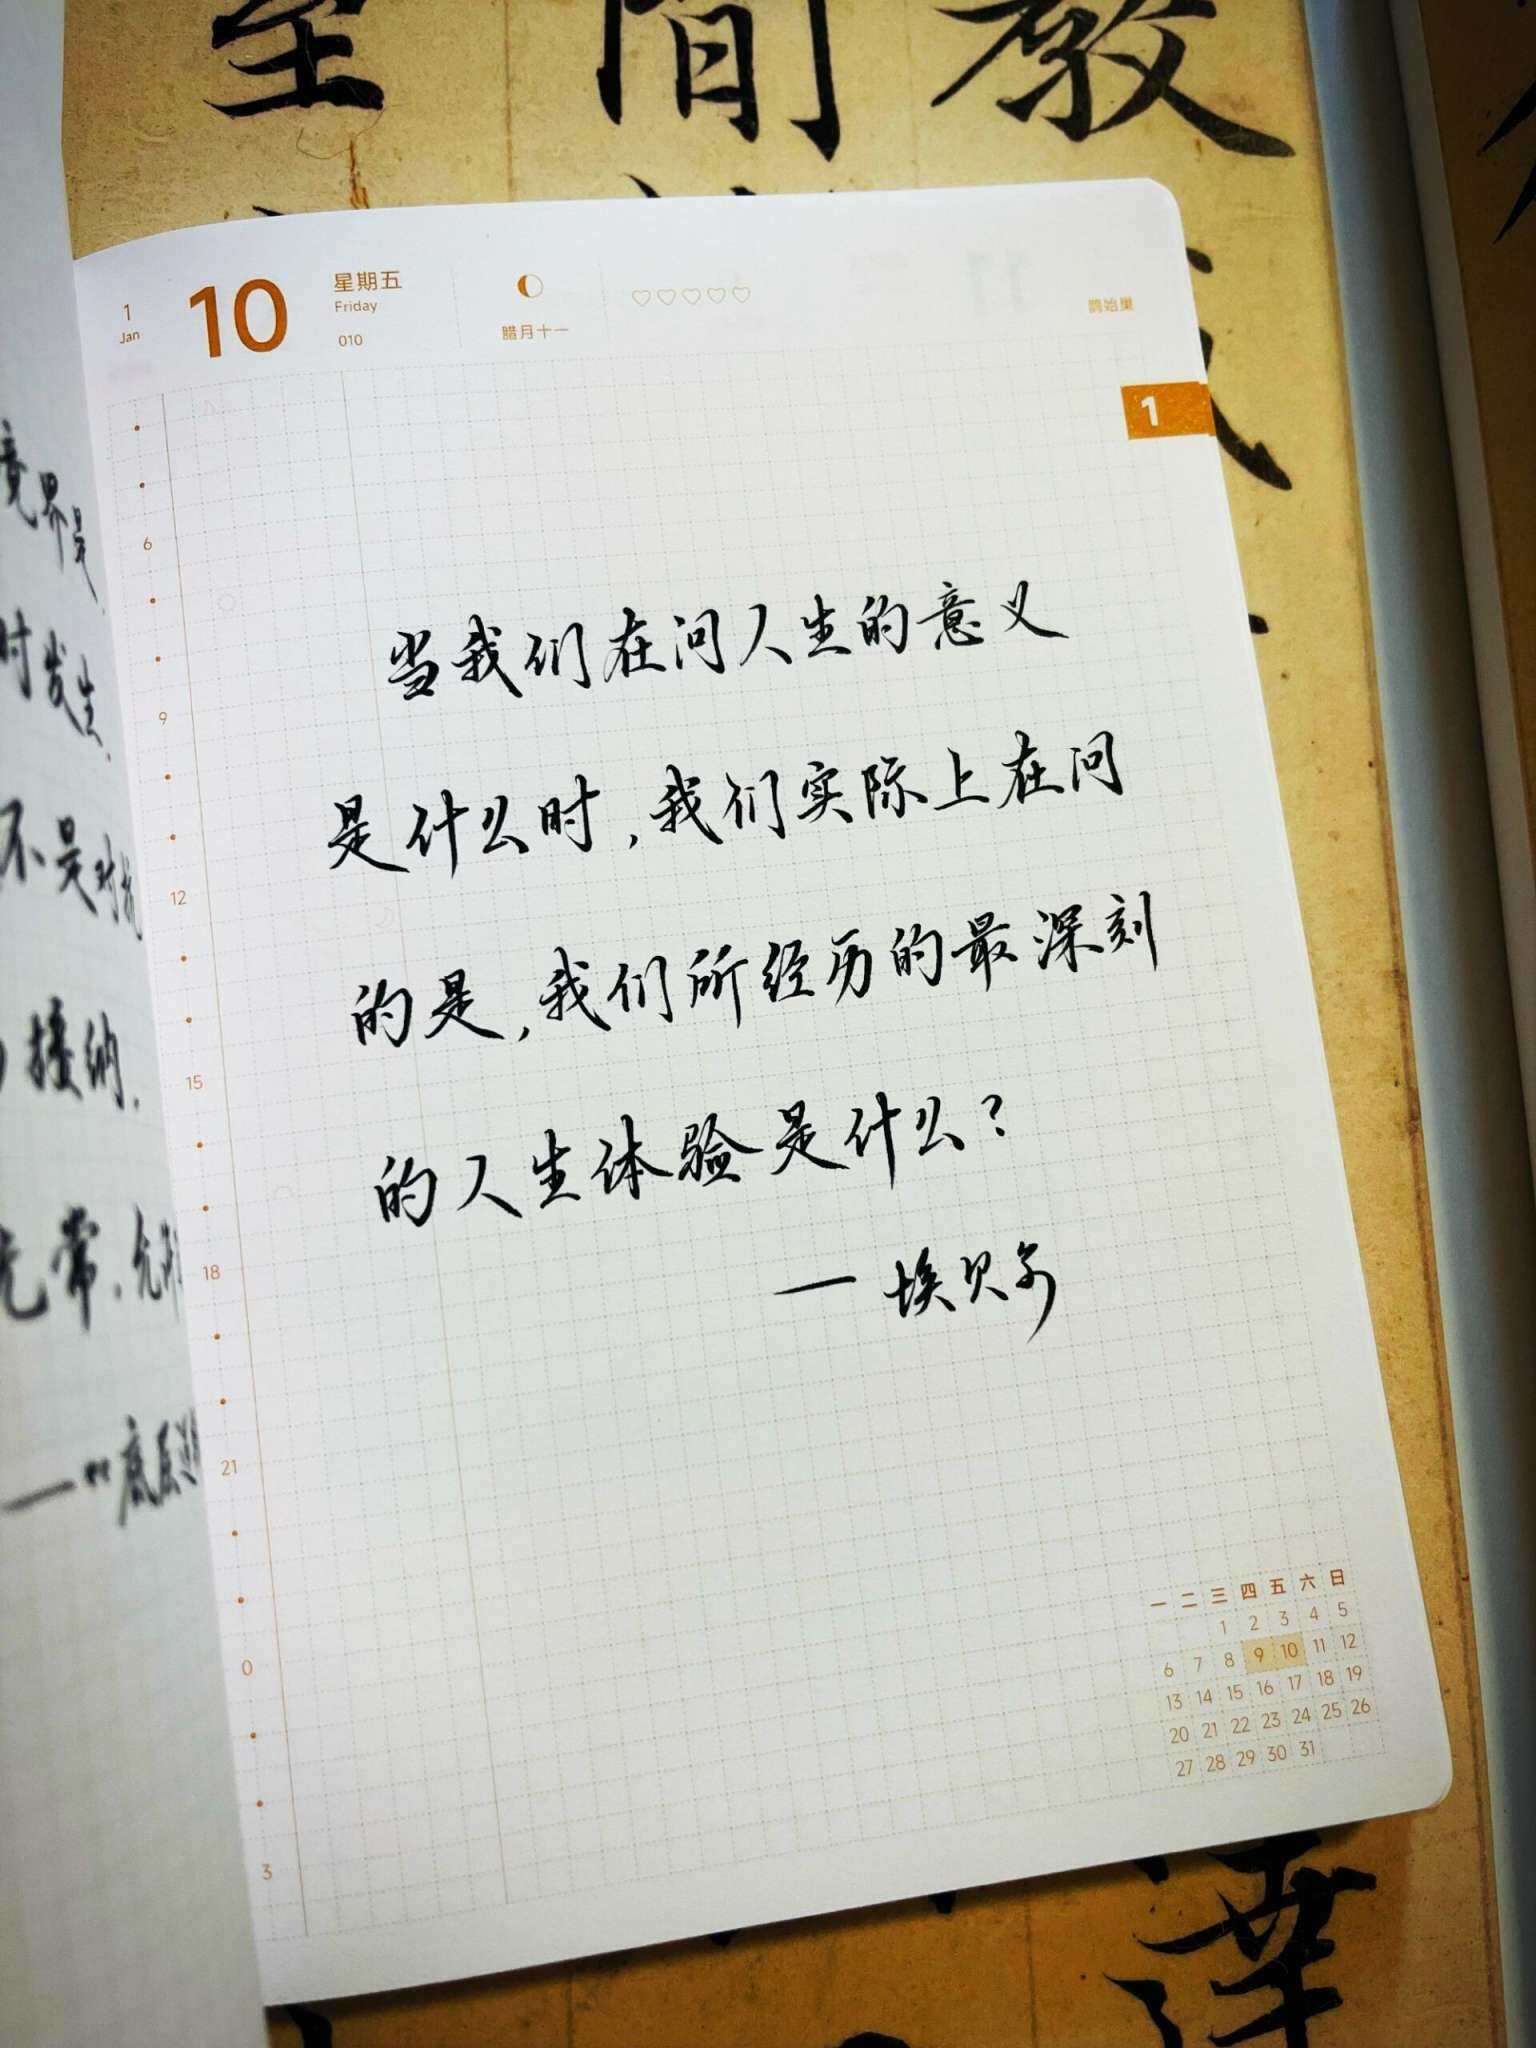 室
間
教
1
Jan
10
星期五
Friday
010
腊月十一
鹊始巢
1
6
9
12
15
18
21
0
3
当我们在问人生的意义
是什么时，我们实际上在问
的是，我们所经历的最深刻
的人生体验是什么？
— 埃贝尔
竟界是
时发生.
不是对抗
接纳.
常，允许
—"底层逻
一 二 三 四 五 六 日
1 2 3 4 5
6 7 8 9 10 11 12
13 14 15 16 17 18 19
20 21 22 23 24 25 26
27 28 29 30 31